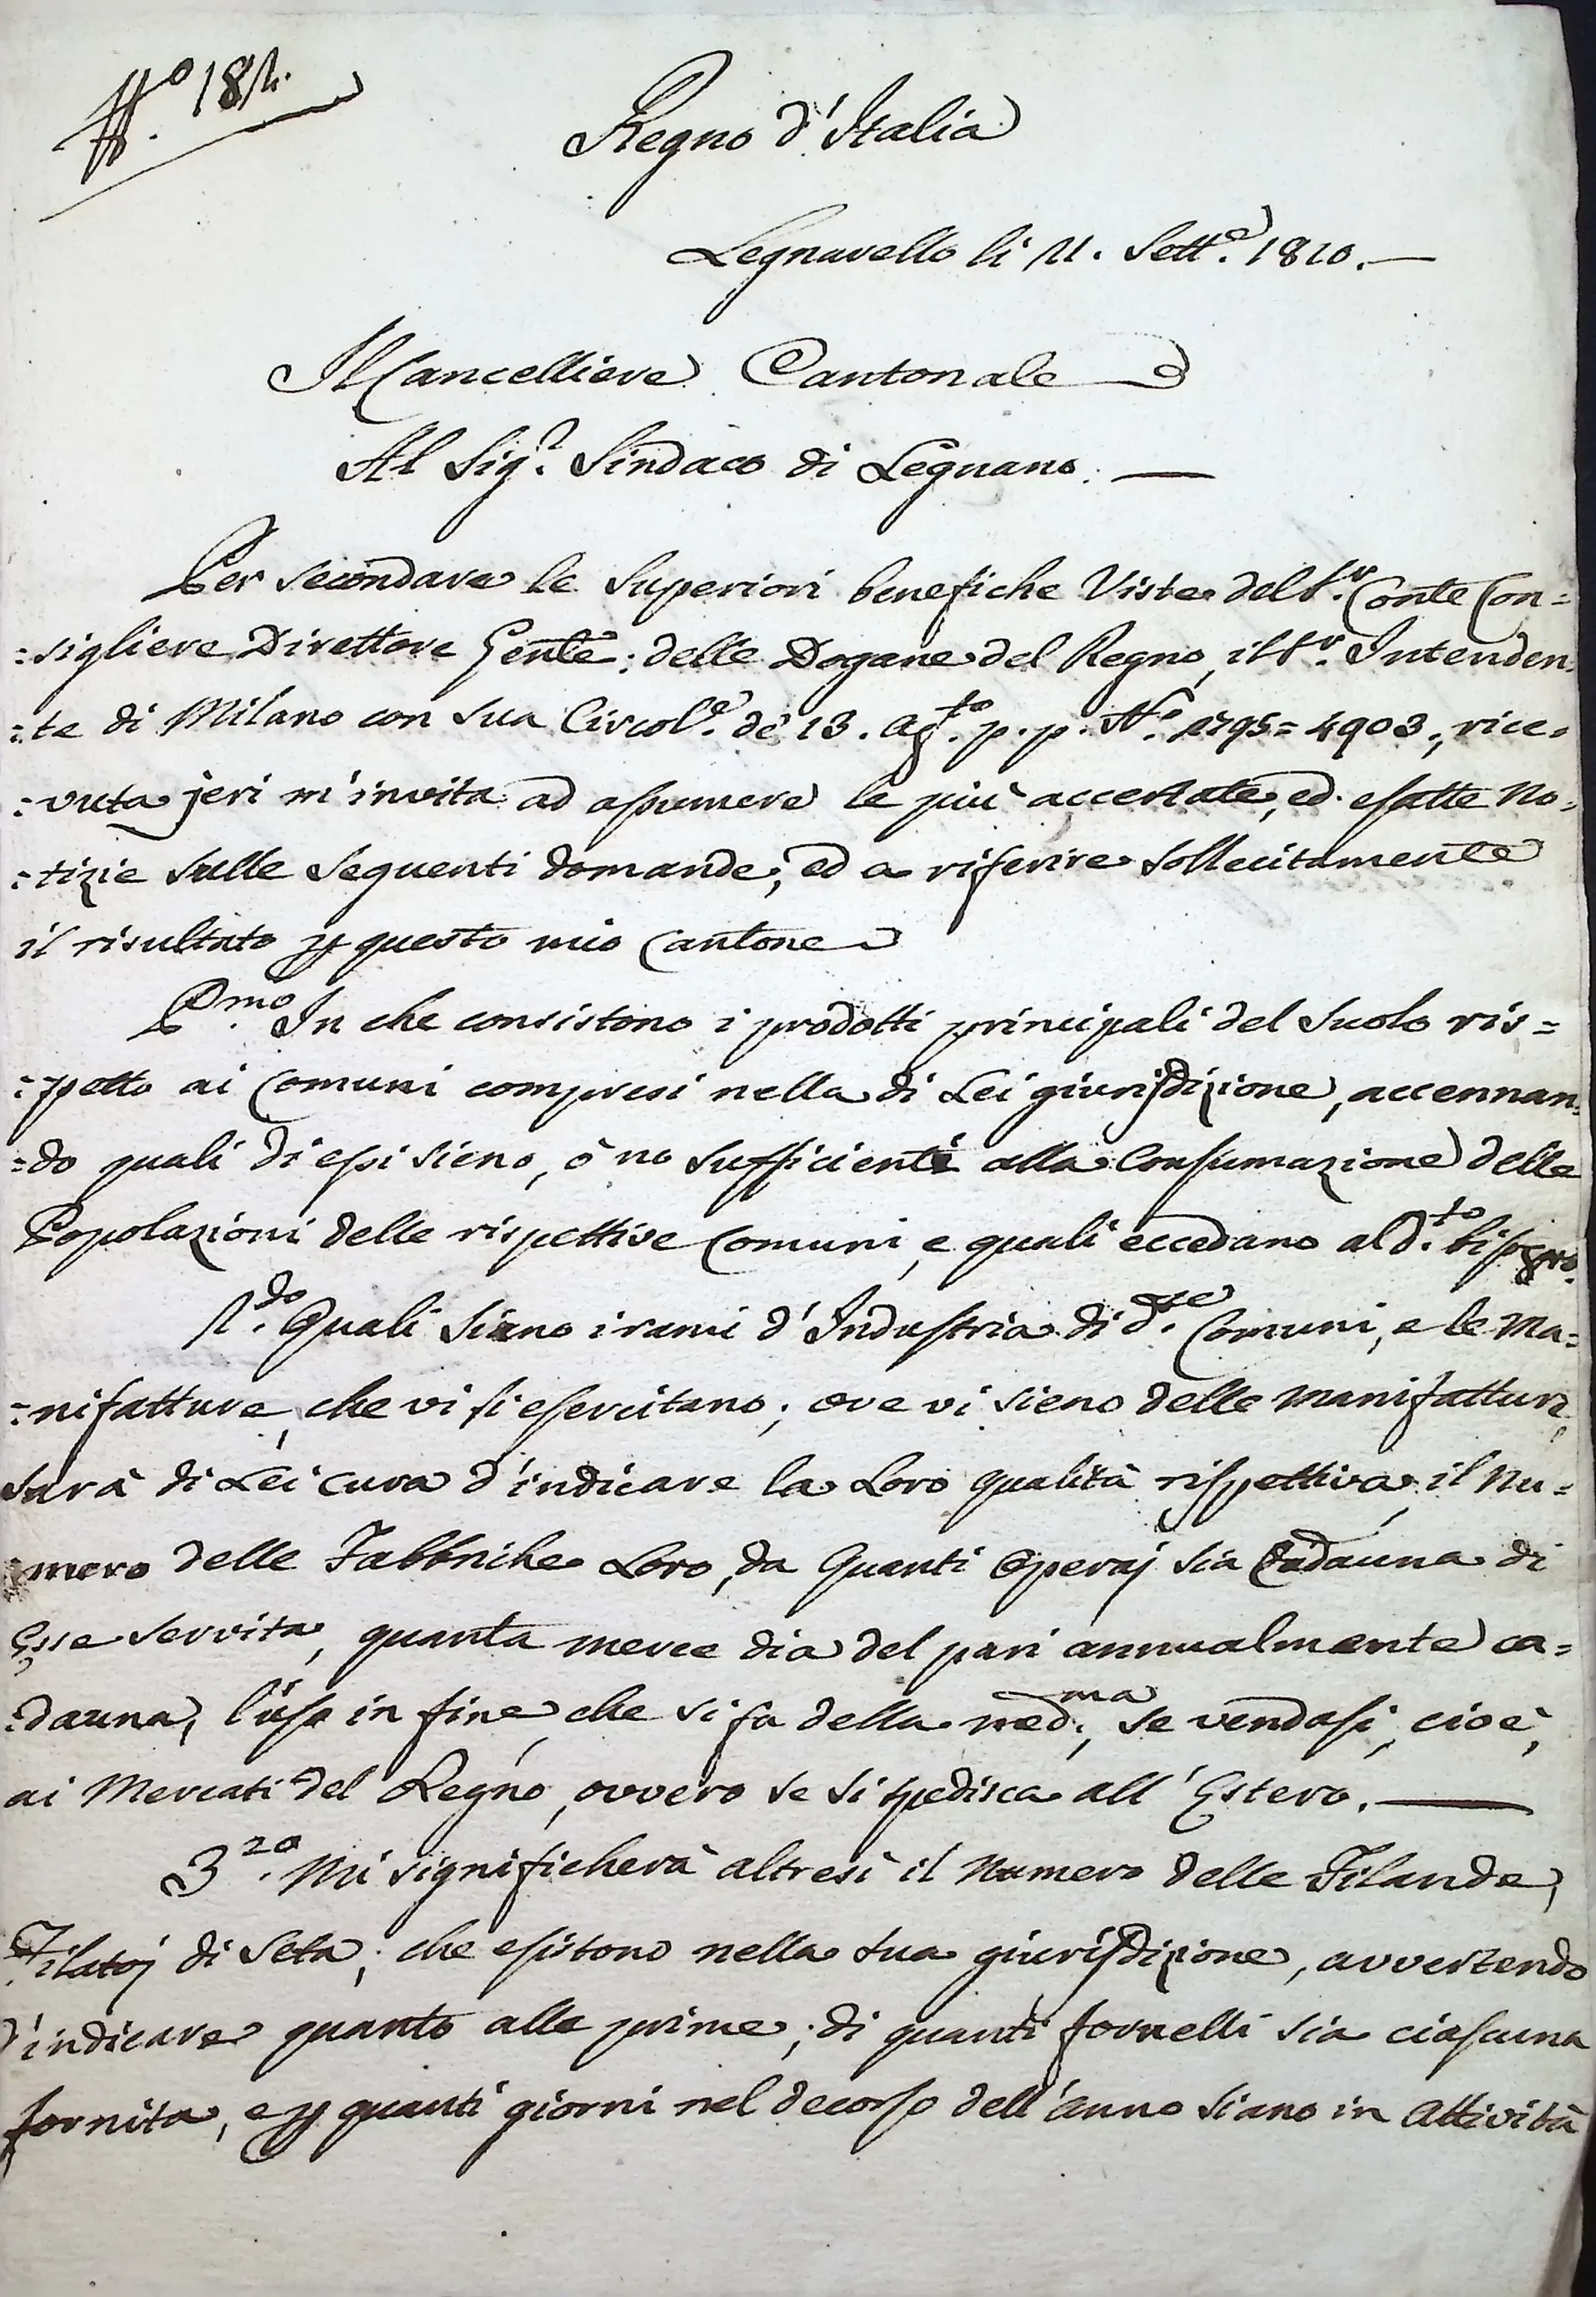 N.º 184.
Regno d'Italia
Legnarello li 11. Sett.e 1810.
Il Cancelliere Cantonale
Al Sig.r Sindaco di Legnano.
Per secondare le Superiori benefiche Viste del S.r Conte Con=
=sigliere Direttore Gen.le delle Dogane del Regno, il S.r Intenden=
=te di Milano con sua Circol.e de' 13. Ag.to p.p. N.º 1795=4903, rice=
=vuta jeri m'invita ad assumere le più accertate, ed esatte No=
=tizie sulle seguenti domande, ed a riferire sollecitamente
il risultato p questo mio Cantone
P.mo In che consistono i prodotti principali del Suolo ris=
=petto ai Comuni compresi nella di Lei giurisdizione, accennan=
=do quali di essi sieno, ò no sufficienti alla Consumazione delle
Popolazioni delle rispettive Comuni, e quali eccedano al d.to bisogno.
2.do Quali siano i rami d'Industria di d.e Comuni, e le Ma=
=nifatture, che vi si esercitano; ove vi sieno delle Manifatture,
sarà di Lei Cura d'indicare la Loro qualità rispettiva, il Nu=
=mero delle Fabbriche Loro, da Quanti Operaj sia Cadauna di
Esse servita, quanta merce dia del pari annualmente ca=
=dauna, l'uso in fine, che si fa della med.ma, se vendasi, cioè,
ai Mercati del Regno, ovvero se si spedisca all'Estero.
3.zo Mi significherà altresì il Numero delle Filande,
Filatoj di Seta, che esistono nella sua giurisdizione, avvertendo
d'indicare quanto alle prime, di quanti fornelli sia ciascuna
fornita, e p quanti giorni nel decorso dell'anno siano in Attività